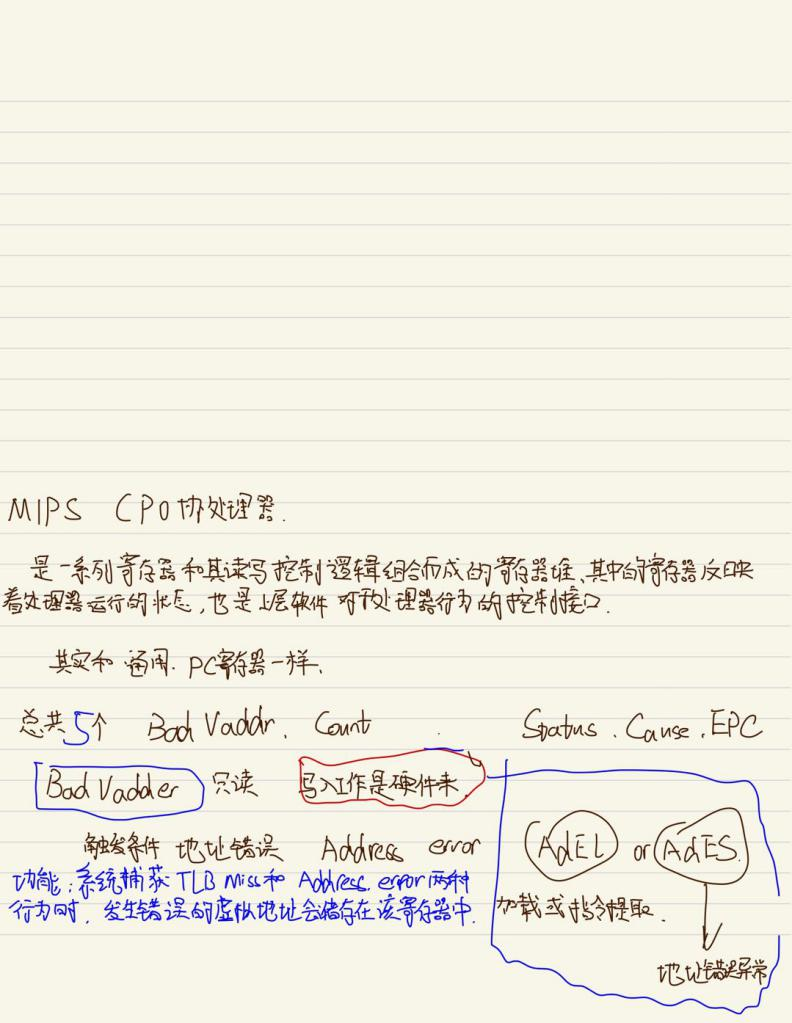 MIPS CP0协处理器.
是一系列寄存器和其读写控制逻辑组合而成的寄存器堆、其中的寄存器反映
着处理器运行的状态,也是上层软件对于处理器行为的控制接口.
其实和 通用. PC寄存器一样.
总共5个 Bad Vaddr. Count . Status . Cause . EPC
Bad Vadder 只读 写入工作是硬件来
触发条件 地址错误 Address error AdEL or AdES.
功能:系统捕获 TLB Miss和 Address. error两种
行为时. 发生错误的虚拟地址会储存在该寄存器中.
加载或指令提取.
地址错误异常